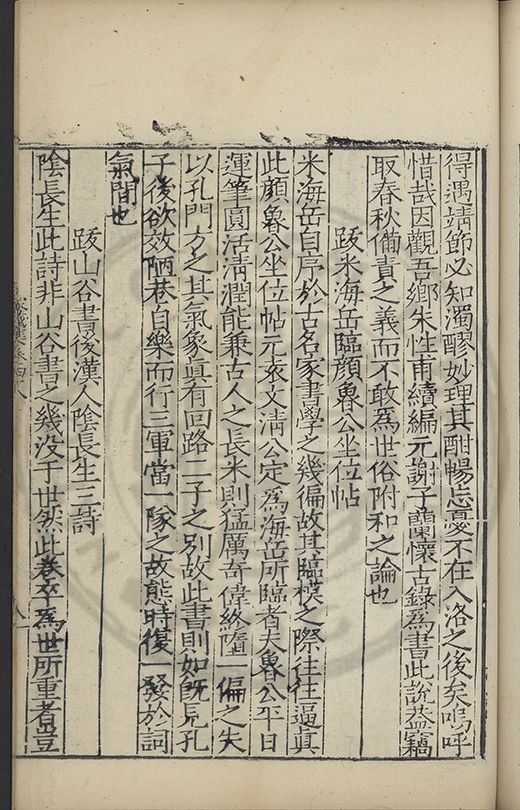 得遇靖節必知濁醪妙理其酣暢忘憂不在入洛之後矣嗚呼
惜哉因觀吾鄉朱性甫續編元謝子蘭懷古錄為書此說蓋竊
取春秋備責之義而不敢為世俗附和之論也
跋米海岳臨顏魯公坐位帖
米海岳自序於古名家書學之幾徧故其臨模之際往往逼真
此顏魯公坐位帖元袁文清公定為海岳所臨者夫魯公平日
運筆圓活清潤能兼古人之長米則猛厲奇偉終隨一偏之失
以孔門方之其氣象真有回路二子之別故此書則如既見孔
子後欲效陋巷自樂而行三軍當一隊之故態時復一發於詞
氣間也
跋山谷書後漢人陰長生三詩
陰長生此詩非山谷書之幾没于世然此卷卒為世所重者豈